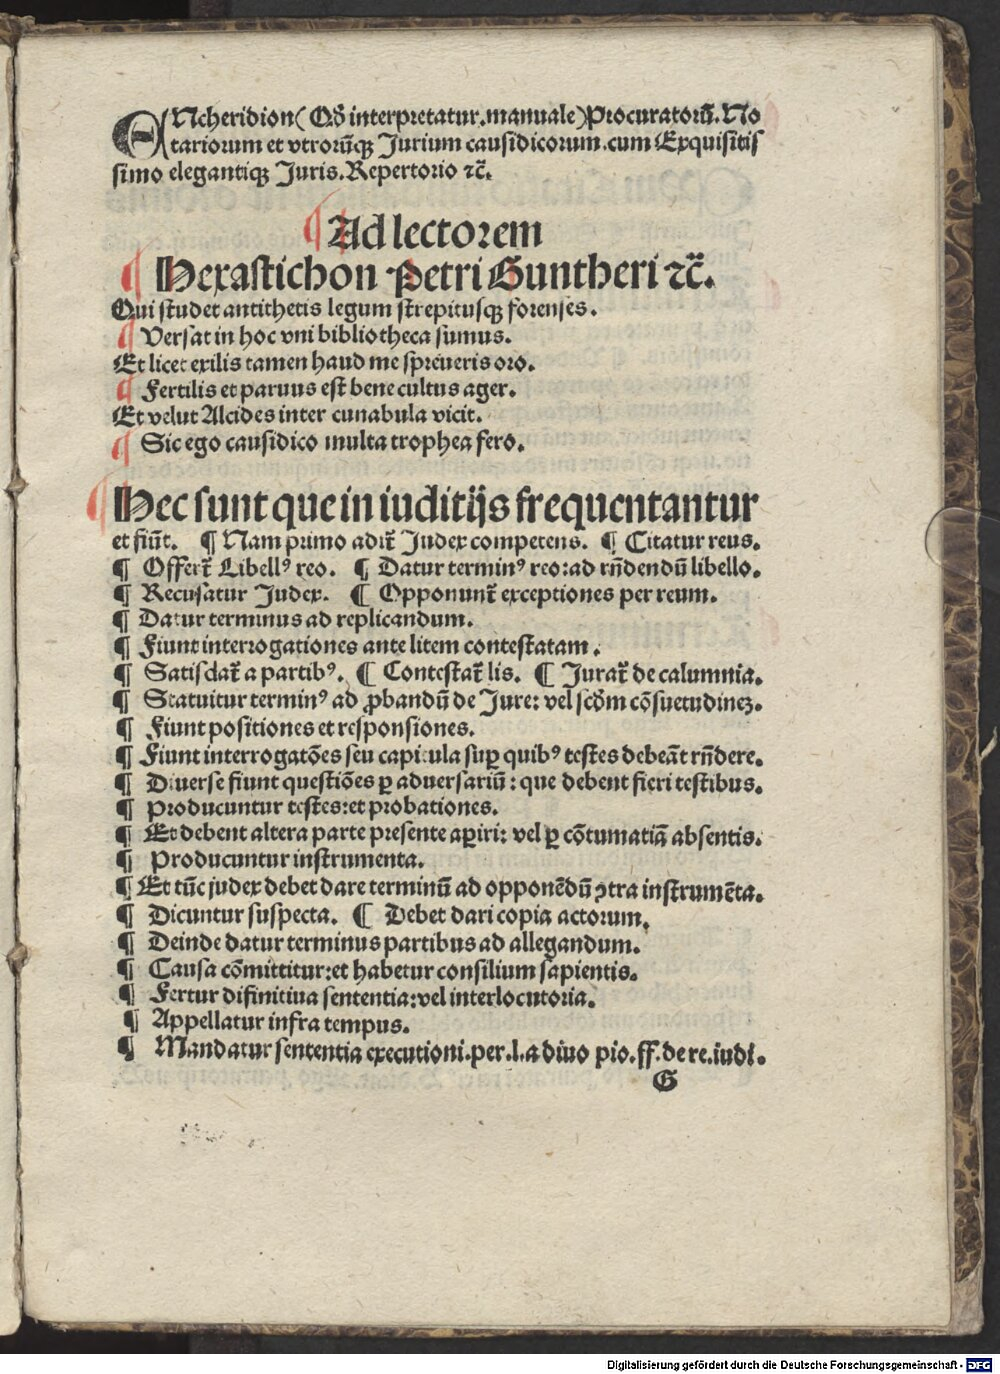 ENcheridion (Qđ interpretatur.manuale) Procuratoꝝ̃. No
tariorum et vtrorũqꝫ Jurium causidicorum. cum Exquisitis
simo elegantiqꝫ Juris. Repertorio ⁊c̃.
¶ Ad lectorem
¶ Hexastichon Petri Guntheri ⁊c̃.
Qui studet antithetis legum strepitusqꝫ forenses.
¶ Versat in hoc vni bibliotheca sumus.
Et licet exilis tamen haud me spreueris oro.
¶ Fertilis et paruus est bene cultus ager.
Et velut Alcides inter cunabula vicit.
¶ Sic ego causidico multa trophea fero.
¶ Hec sunt que in iuditijs frequentantur
et fiũt. ¶ Nam primo adit̃ Judex competens. ¶ Citatur reus.
¶ Offert̃ Libellꝰ reo. ¶ Datur terminꝰ reo: ad rñdendũ libello.
¶ Recusatur Judex. ¶ Opponunt̃ exceptiones per reum.
¶ Datur terminus ad replicandum.
¶ Fiunt interrogationes ante litem contestatam.
¶ Satisdat̃ a partibꝰ. ¶ Contestat̃ lis. ¶ Jurat̃ de calumnia.
¶ Statuitur terminꝰ ad ꝓbandũ de Jure: vel scđm cõsuetudineꝫ.
¶ Fiunt positiones et responsiones.
¶ Fiunt interrogatões seu capitula suꝑ quibꝰ testes debeãt rñdere.
¶ Diuerse fiunt questiões ꝑ aduersariũ: que debent fieri testibus.
¶ Producuntur testes: et probationes.
¶ Et debent altera parte presente aꝑiri: vel ꝑ cõtumatiã absentis.
¶ Producuntur instrumenta.
¶ Et tũc judex debet dare terminũ ad opponẽdũ ꝯtra instrumẽta.
¶ Dicuntur suspecta. ¶ Debet dari copia actorum.
¶ Deinde datur terminus partibus ad allegandum.
¶ Causa cõmittitur: et habetur consilium sapientis.
¶ Fertur difinitiua sententia: vel interlocutoria.
¶ Appellatur infra tempus.
¶ Mandatur sententia executioni. per. l. a diuo pio. ff. de re. iudi.
G
Digitalisierung gefördert durch die Deutsche Forschungsgemeinschaft - DFG